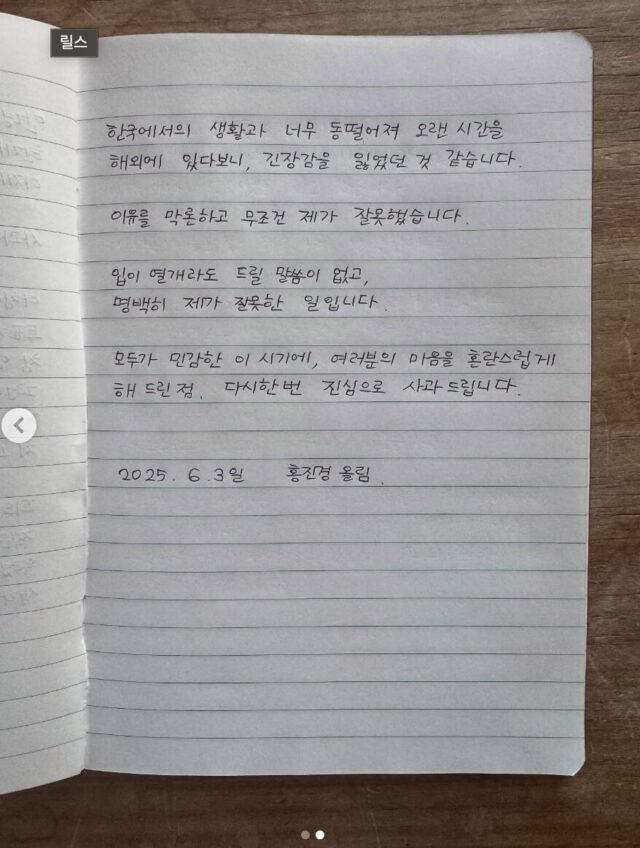 릴스
한국에서의 생활과 너무 동떨어져 오랜 시간을
해외에 있다보니, 긴장감을 잃었던 것 같습니다.
이유를 막론하고 무조건 제가 잘못했습니다.
입이 열개라도 드릴 말씀이 없고,
명백히 제가 잘못한 일입니다.
모두가 민감한 이 시기에, 여러분의 마음을 혼란스럽게
해 드린 점, 다시한번 진심으로 사과드립니다.
2025. 6. 3일 홍진경 올림.